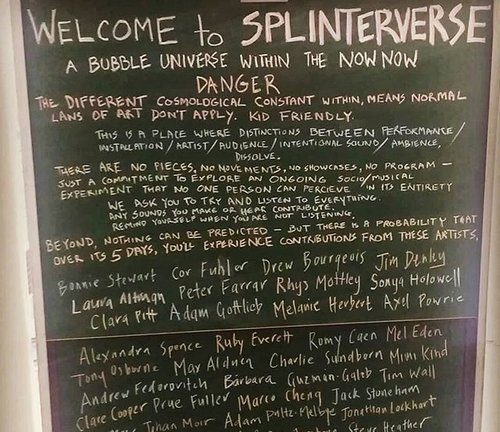 WELCOME to SPLINTERVERSE
A BUBBLE UNIVERSE WITHIN THE NOW NOW
DANGER
THE DIFFERENT COSMOLOGICAL CONSTANT WITHIN, MEANS NORMAL
LAWS OF ART DON'T APPLY. KID FRIENDLY.
THIS IS A PLACE WHERE DISTINCTIONS BETWEEN PERFORMANCE/
INSTALLATION/ARTIST/AUDIENCE/INTENTIONAL SOUND/AMBIENCE,
DISSOLVE.
THERE ARE NO PIECES, NO MOVEMENTS, NO SHOWCASES, NO PROGRAM –
JUST A COMMITMENT TO EXPLORE AN ONGOING SOCIO/MUSICAL
EXPERIMENT THAT NO ONE PERSON CAN PERCIEVE IN ITS ENTIRETY
WE ASK YOU TO TRY AND LISTEN TO EVERYTHING.
ANY SOUNDS YOU MAKE OR HEAR CONTRIBUTE.
REMIND YOURSELF WHEN YOU ARE NOT LISTENING.
BEYOND, NOTHING CAN BE PREDICTED – BUT THERE IS A PROBABILITY THAT
OVER ITS 5 DAYS, YOU'LL EXPERIENCE CONTRIBUTIONS FROM THESE ARTISTS,
Bonnie Stewart Cor Fuhler Drew Bourgeois Jim Denley
Laura Altman Peter Farrar Rhys Mottley Sonya Holowell
Clara Pitt Adam Gottlieb Melanie Herbert Axel Powrie
Alexandra Spence Ruby Everett Romy Caen Mel Eden
Tony Osborne Max Alduca Charlie Sundborn Mimi Kind
Andrew Fedorovitch Barbara Guzmán-Galeb Tim Wall
Clare Cooper Prue Fuller Marco Cheng Jack Stoneham
Johan Moir Adam Pultz-Melbye Jonathan Lockhart
Steve Heather